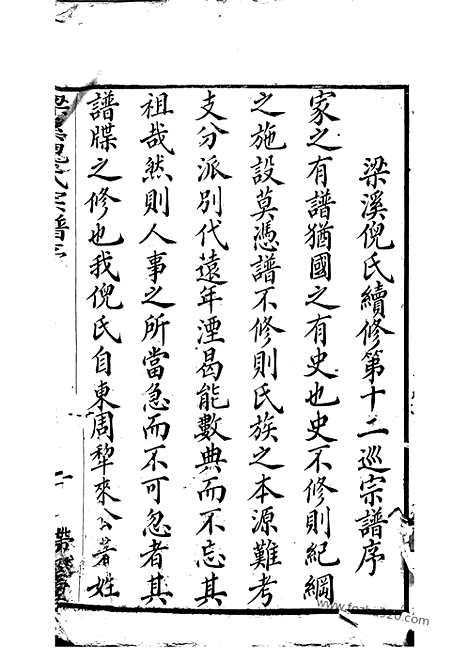 梁溪倪氏續修第十二巡宗譜序
家之有譜猶國之有史也史不修則紀綱
之施設莫憑譜不修則氏族之本源難考
支分派別代遠年湮曷能數典而不忘其
祖哉然則人事之所當急而不可忽者其
譜牒之修也我倪氏自東周犂來公著姓
梁溪倪氏宗譜序